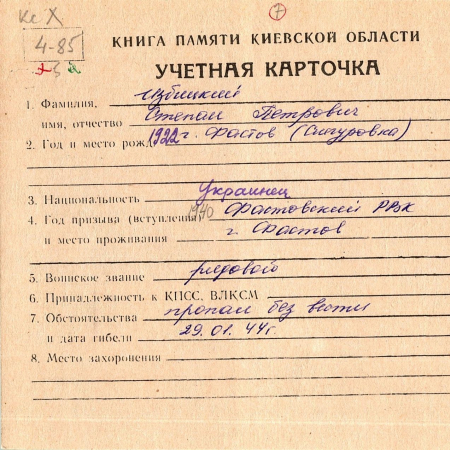 Ке X
7
4-85
КНИГА ПАМЯТИ КИЕВСКОЙ ОБЛАСТИ
УЧЕТНАЯ КАРТОЧКА
1. Фамилия, Избицкий
имя, отчество Степан Петрович
2. Год и место рожд 1922 г. Фастов (Снигуровка)
3. Национальность Украинец
4. Год призыва (вступления) 1940 Фастовский РВК
и место проживания г. Фастов
5. Воинское звание рядовой
6. Принадлежность к КПСС, ВЛКСМ
7. Обстоятельства пропал без вести
и дата гибели 29.01.44г
8. Место захоронения